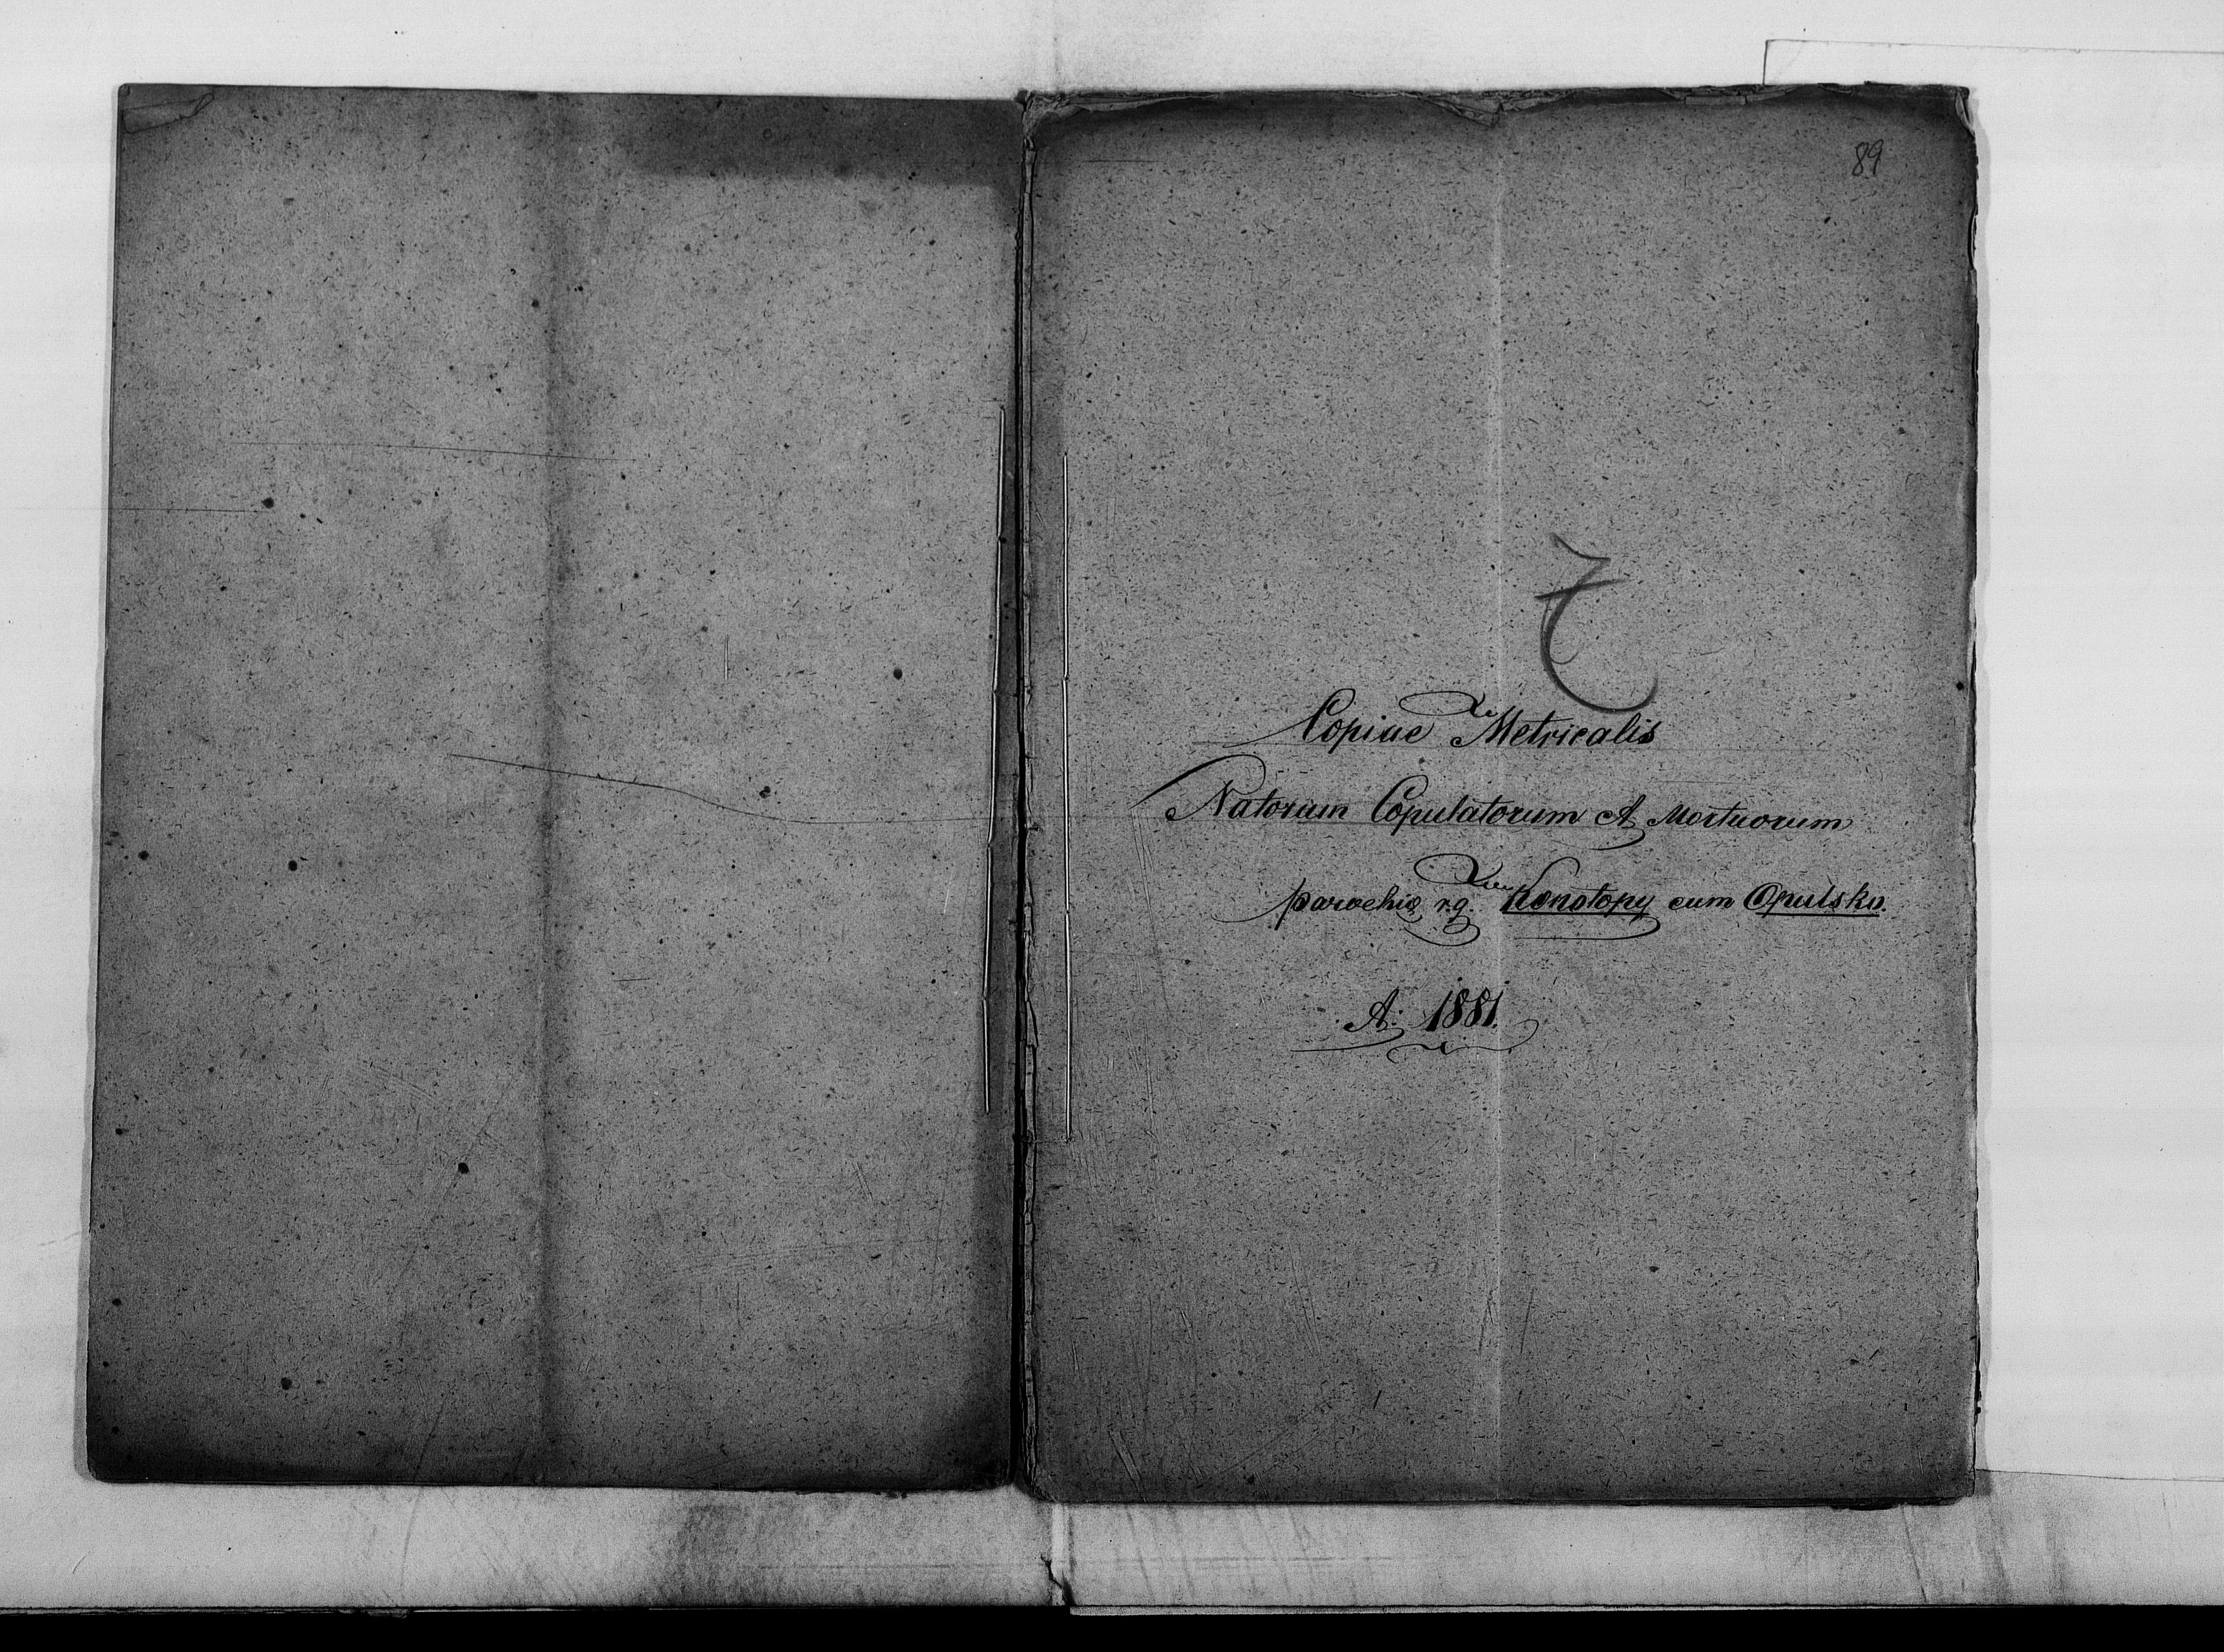 89
Copiae Metricalis
Natorum Copulatorum et Mortuorum
parochiae r.g. Konotopy cum Opulsko.
A: 1881.